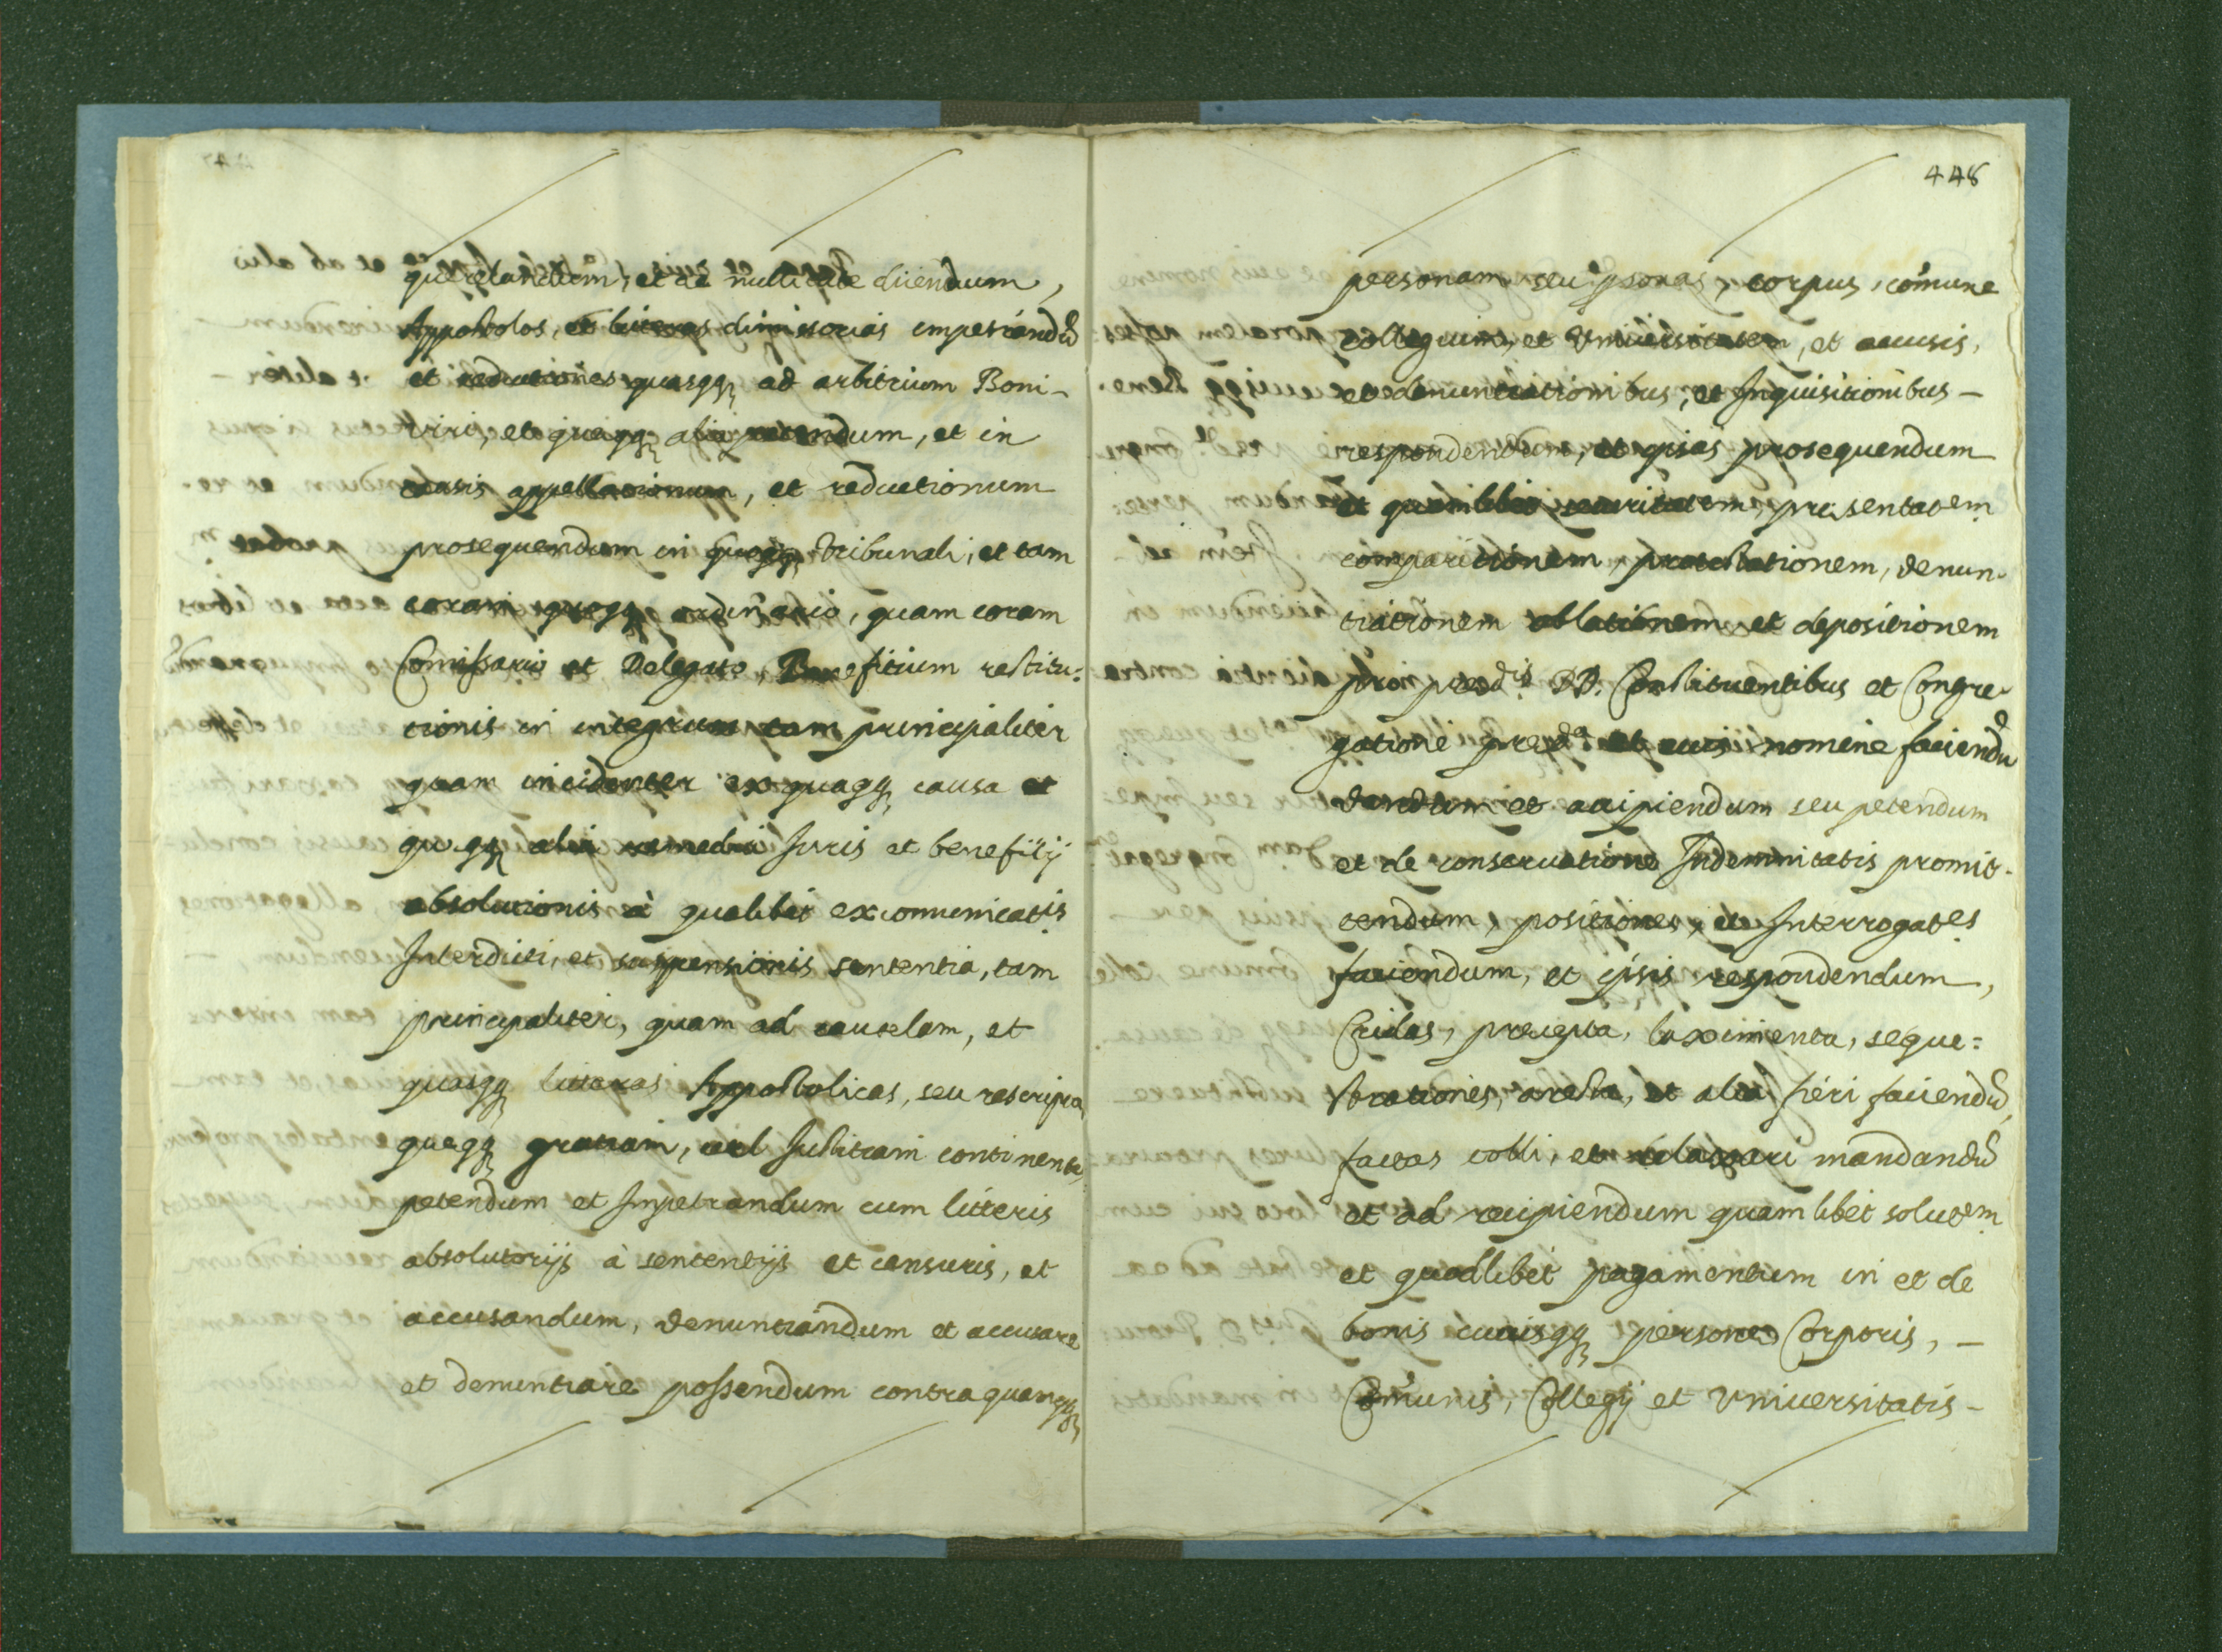 querelandum, et de nullitate dicendum,
Appostolos, et literas dimissorias impetrandũ
et reductiones quasqꝫ ad arbitrium Boni-
viri, et queqꝫ alia petendum, et in
causis appellationum, et reductionum
prosequendum in quoqꝫ tribunali, et tam
coram quoqꝫ ordinario, quam coram
Comissario et Delegato, Benefitium restitu=
tionis in integrum tam principaliter
quam incidenter ex quaqꝫ causa et
queqꝫ alia remedia Iuris et benefitij
absolutionis à qualibet excomunicatis
Interdicti, et suspensionis sententia, tam
principaliter, quam ad cautelam, et
quasqꝫ litteras Appostolicas, seu rescripta
queqꝫ gratiam, vel Iustitiam continentia
petendum et Impetrandum cum litteris
absolutorijs à sententijs et censuris, et
accusandum, denuntiandum et accusare
et denuntiare possendum contra quamqꝫ
448
personam seu psonas, corpus, comune
collegium, et Universitatem, et accusis,
et denuntiationibus, et Inquisitionibus-
respondendum, et ipsas prosequendum
et quamlibet securitatem, presentatem
comparitionem, protestationem, denun-
tiationem oblationem et depositionem
pro predis DD. Constituentibus et Congre-
gatione preda et eius nomine faciendũ
dandum et accipiendum seu petendum
et de conservatione Indemnitatis promit-
tendum, positiones, et Interrogates
faciendum, et ipsis respondendum,
Cridas, precepta, laximenta, seque=
strationes, aresta, et alia fieri faciendũ,
factas tolli, et relaxari mandandũ
et ad recipiendum quamlibet solutem
et quodlibet pagamentum in et de
bonis cuiusqꝫ persone, Corporis, -
Comunis, Collegij et Universitatis-